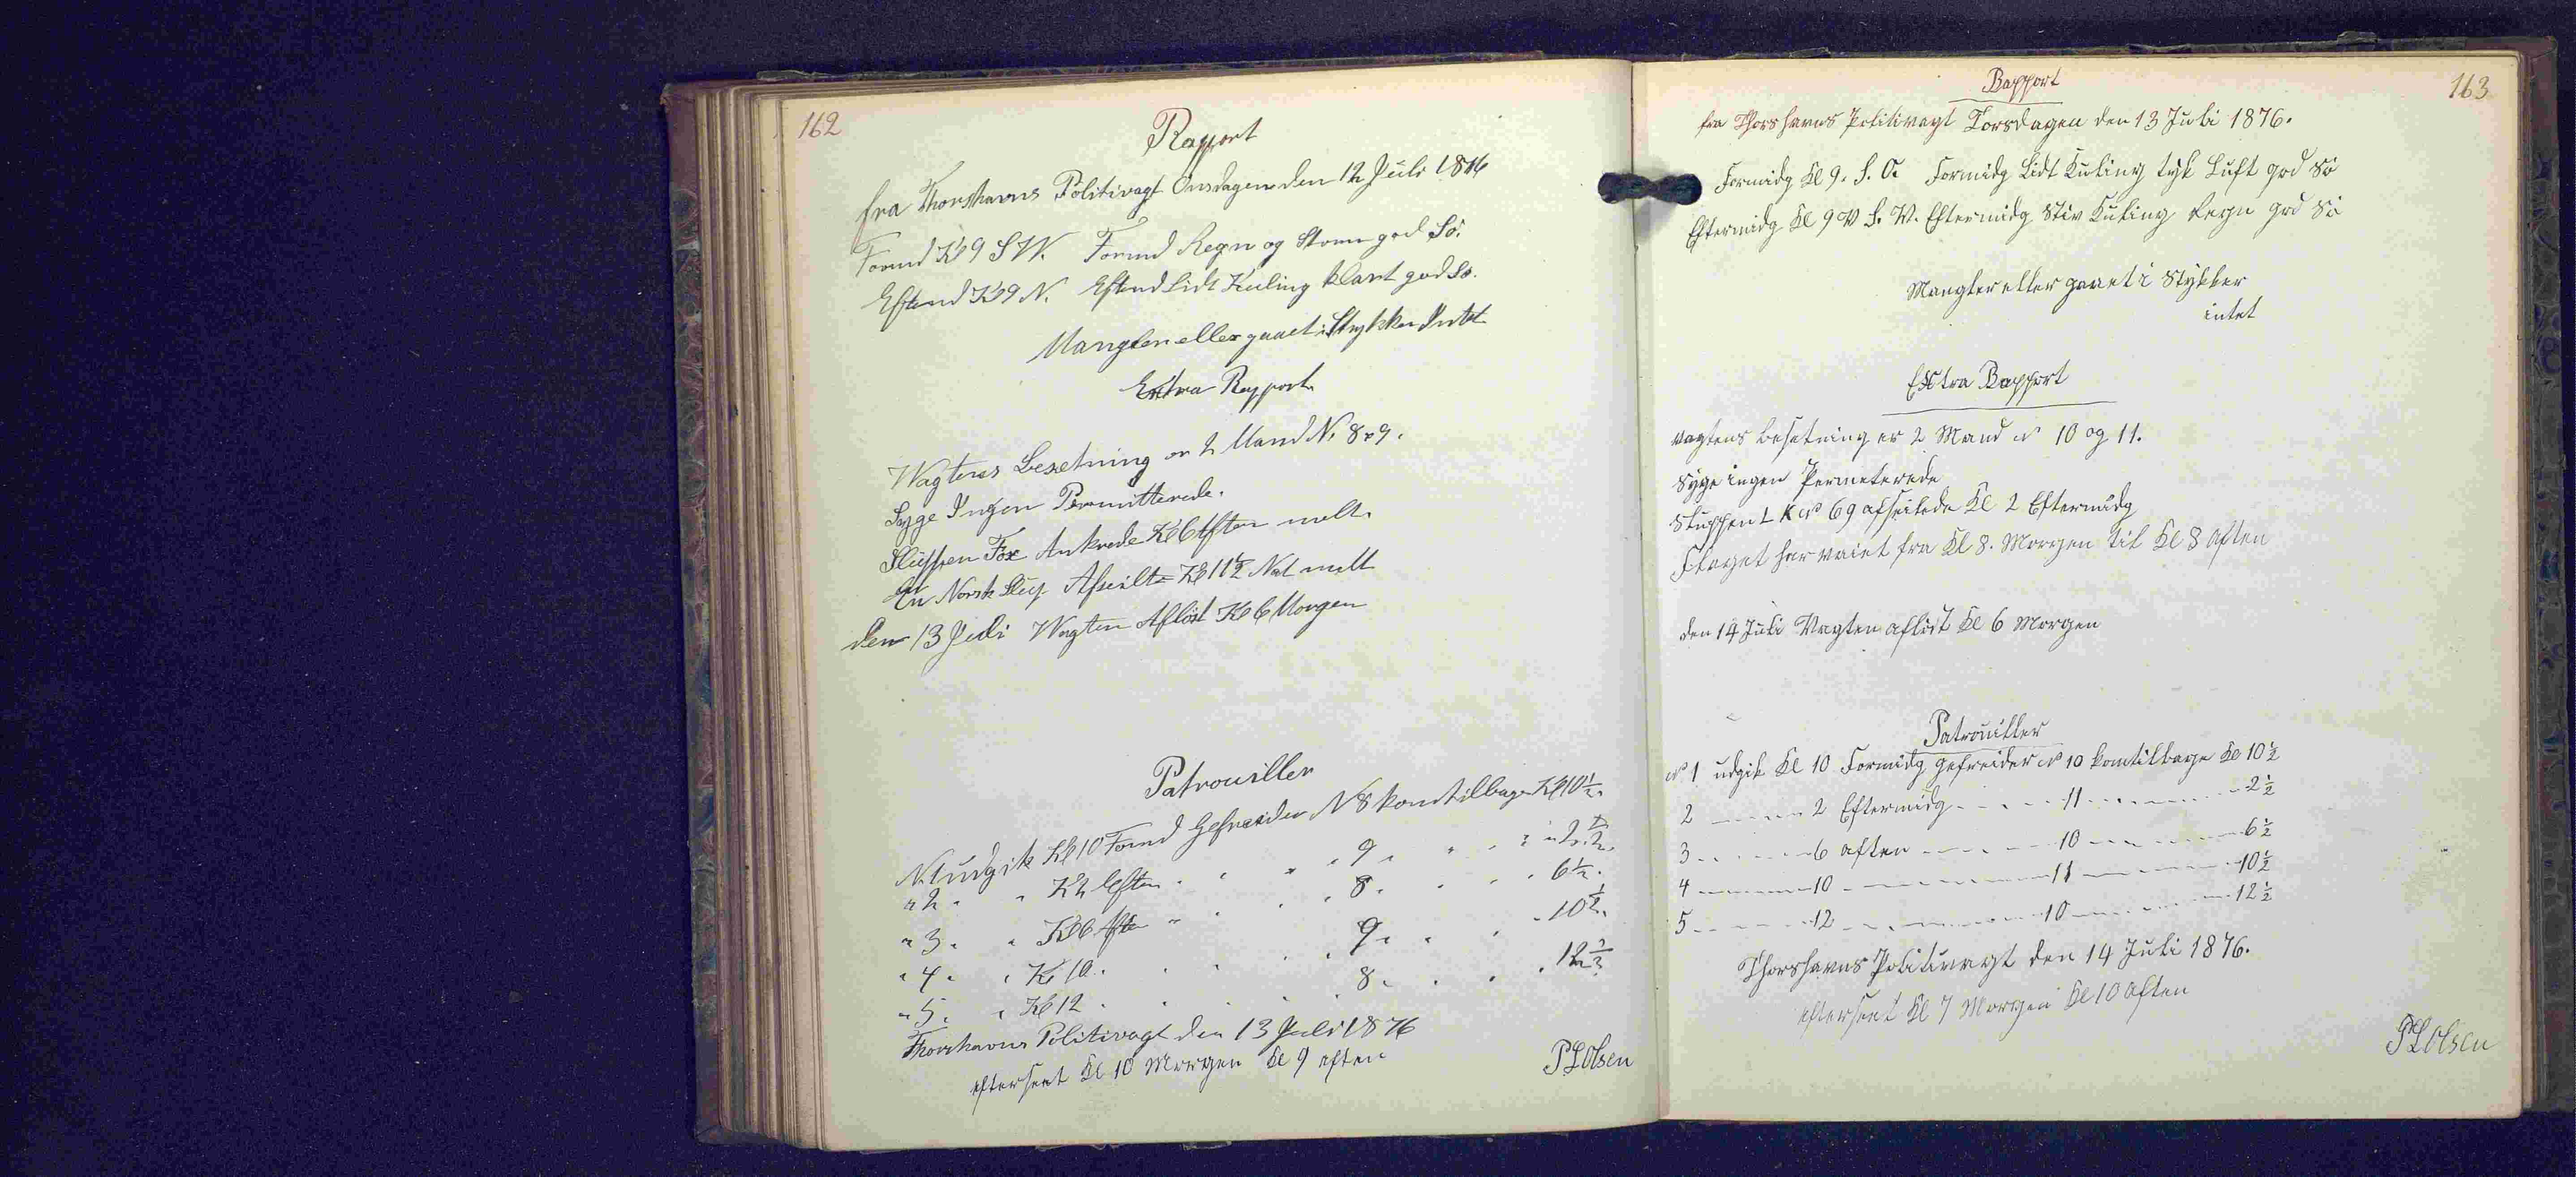 162
Rapport
fra Thorshavns Politivagt Onsdagen den 12 Juli 1876
Formd Kl 9 S W. Formd Regn og Storm god Sö.
Eftmd Kl 9 N. Eftmd Lidt Kuling klart god Sö.
Mangler eller gaaet i Stykker Intet
Extra Rapport
Wagtens Besetning er 2 Mand N. 8 & 9.
Syge Ingen Permitterede.
Sluppen Fox Ankrede Kl 6 Aften melt.
En Norsk Slup Afseilte Kl 11½ Nat melt
den 13 Juli Wagten Aflöst Kl 6 Morgen
Patrouiller
N. 1 udgik Kl 10 Formd Gefreider N 8 kom tilbage Kl 10½.
" 2 " " Kl 2 Eften " " " " 9 " " " " " 2½.
" 3 " " Kl 6 Aften " " " 8 " " " " 6½.
" 4 " " Kl 10 " " " " 9 " " " " 10½.
" 5 " " Kl 12 " " " " 8 " " " " 12½
Thorshavns Politivagt den 13 Juli 1876
efterseet Kl 10 Morgen Kl 9 aften
P L Olsen
163
Rapport
fra Thorshavns Politivagt Torsdagen den 13 Juli 1876.
Formidg Kl 9. S. O. Formidg Lidt Kuling tyk Luft god Sö
Eftermidg Kl 9 V S. V. Eftermidg Stiv Kuling Regn god Sö
Mangler eller gaaet i Stykker
intet
Exstra Rapport
vagtens besetning er 2 Mand No 10 og 11.
Syge ingen Permeterede
Sluppen L K No 69 afseilede Kl 2 Eftermidg
Flaget har vaiet fra Kl 8. Morgen til Kl 8 Aften
den 14 Juli Vagten aflöst Kl 6 Morgen
Patrouiller
No 1 udgik Kl 10 Formidg gefreider No 10 kom tilbage Kl 10½
2 ---- 2 Eftermidg ---- 11 ---- 2½
3 ---- 6 aften ---- 10 ---- 6½
4 ---- 10 ---- 11 ---- 10½
5 ---- 12 ---- 10 ---- 12½
Thorshavns Politivagt den 14 Juli 1876.
efterseet Kl 7 Morgen Kl 10 Aften
P L Olsen